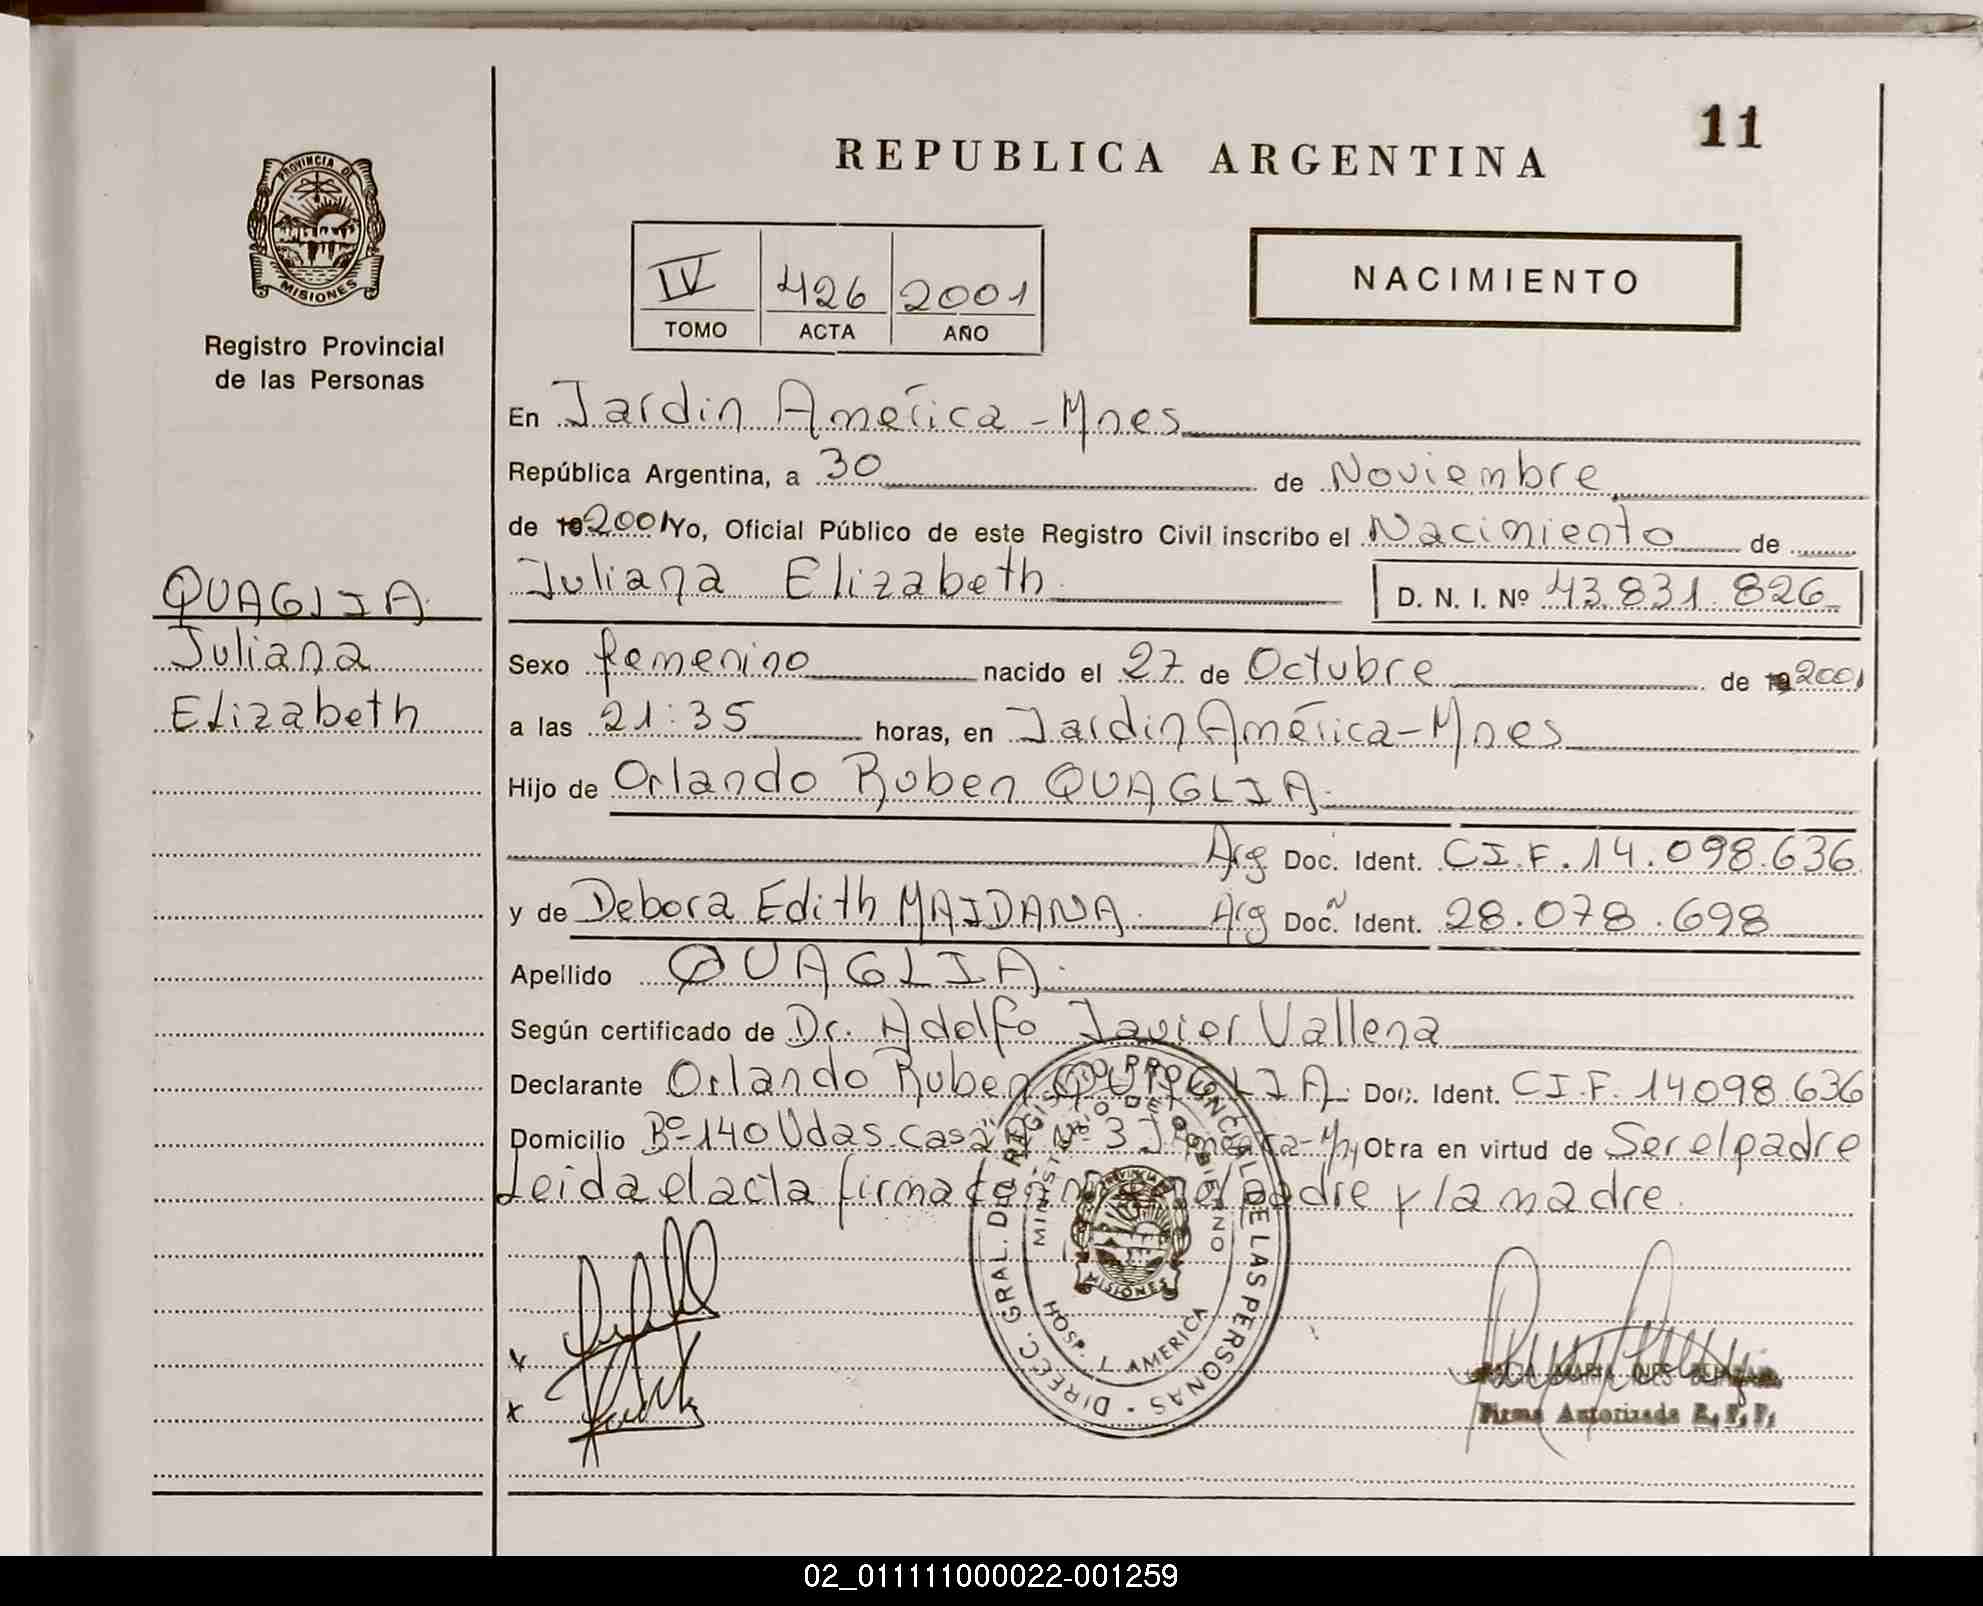 11
REPUBLICA ARGENTINA
PROVINCIA DE
MISIONES
Registro Provincial
de las Personas
IV 426 2001
TOMO ACTA AÑO
NACIMIENTO
En Jardin América - Mnes
República Argentina, a 30 de Noviembre
de 19 2001 Yo, Oficial Público de este Registro Civil inscribo el Nacimiento de
Juliana Elizabeth D. N. I. Nº 43.831.826
QUAGLIA
Juliana
Elizabeth
Sexo femenino nacido el 27 de Octubre de 19 2001
a las 21:35 horas, en Jardin América - Mnes
Hijo de Orlando Ruben QUAGLIA
Arg Doc. Ident. C.I.F. 14.098.636
y de Debora Edith MAIDANA. Arg Doc. Ident. 28.078.698
Apellido QUAGLIA.
Según certificado de Dr. Adolfo Javier Vallena
Declarante Orlando Ruben QUAGLIA. Doc. Ident. C.I.F. 14098.636
Domicilio Bº-140 Vdas. casa Nº 3 J. América - Obra en virtud de Ser el padre
Leida el acta firma el padre y la madre.
DIREC. GRAL. DEL REGISTRO PROVINCIAL DE LAS PERSONAS
MINISTERIO DE GOBIERNO
MISIONES
HOSP. L. AMERICA
x
x
MARIA INES
Firma Autorizada R. P. P.
02_011111000022-001259